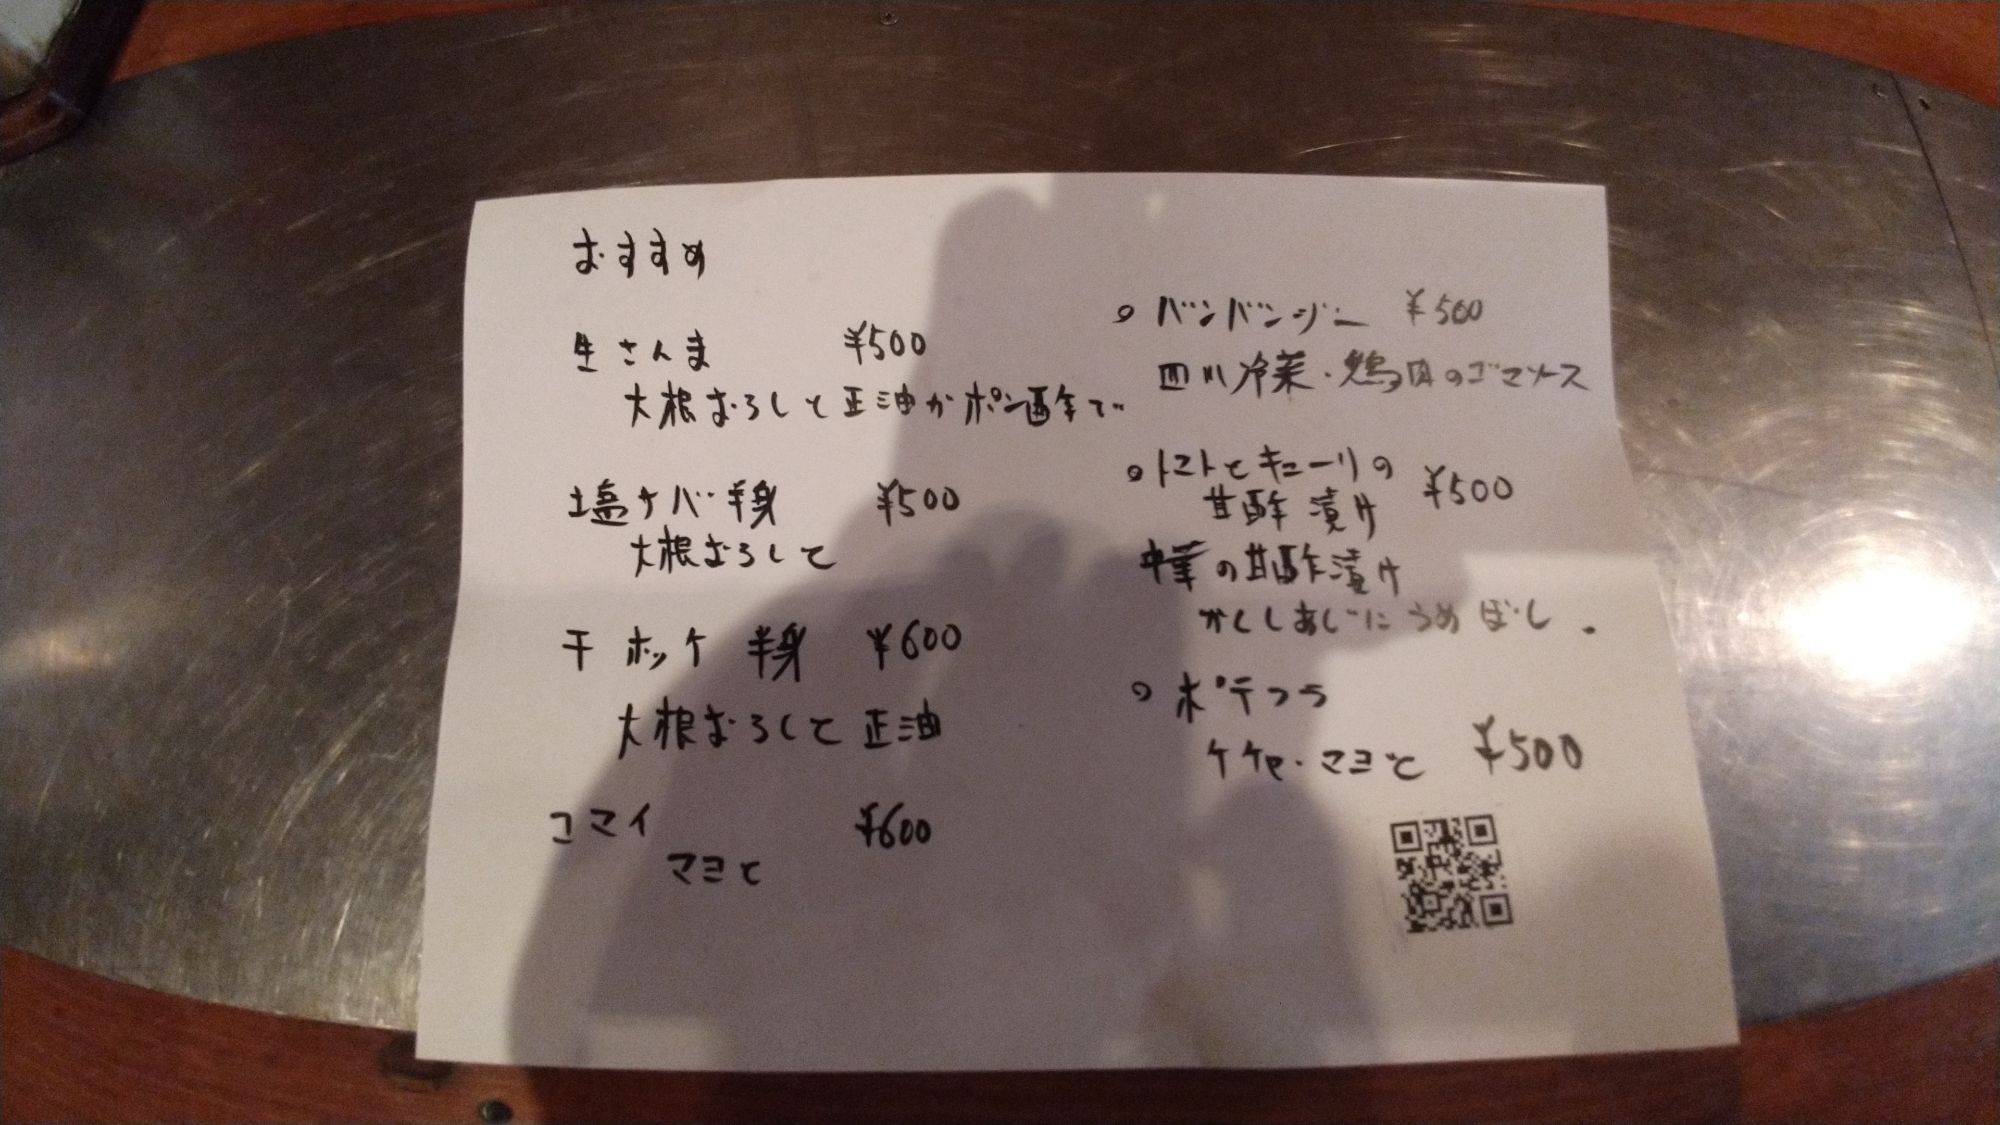 おすすめ
生さんま ¥500
大根おろしと正油かポン酢で
塩サバ半身 ¥500
大根おろしと
干ホッケ 半身 ¥600
大根おろしと正油
コマイ ¥600
マヨと
○バンバンジー ¥500
四川冷菜・鶏肉のゴマソース
○トマトとキューリの
甘酢漬け ¥500
中華の甘酢漬け
かくしあじにうめぼし。
○ポテフラ
ケケャ・マヨと ¥500